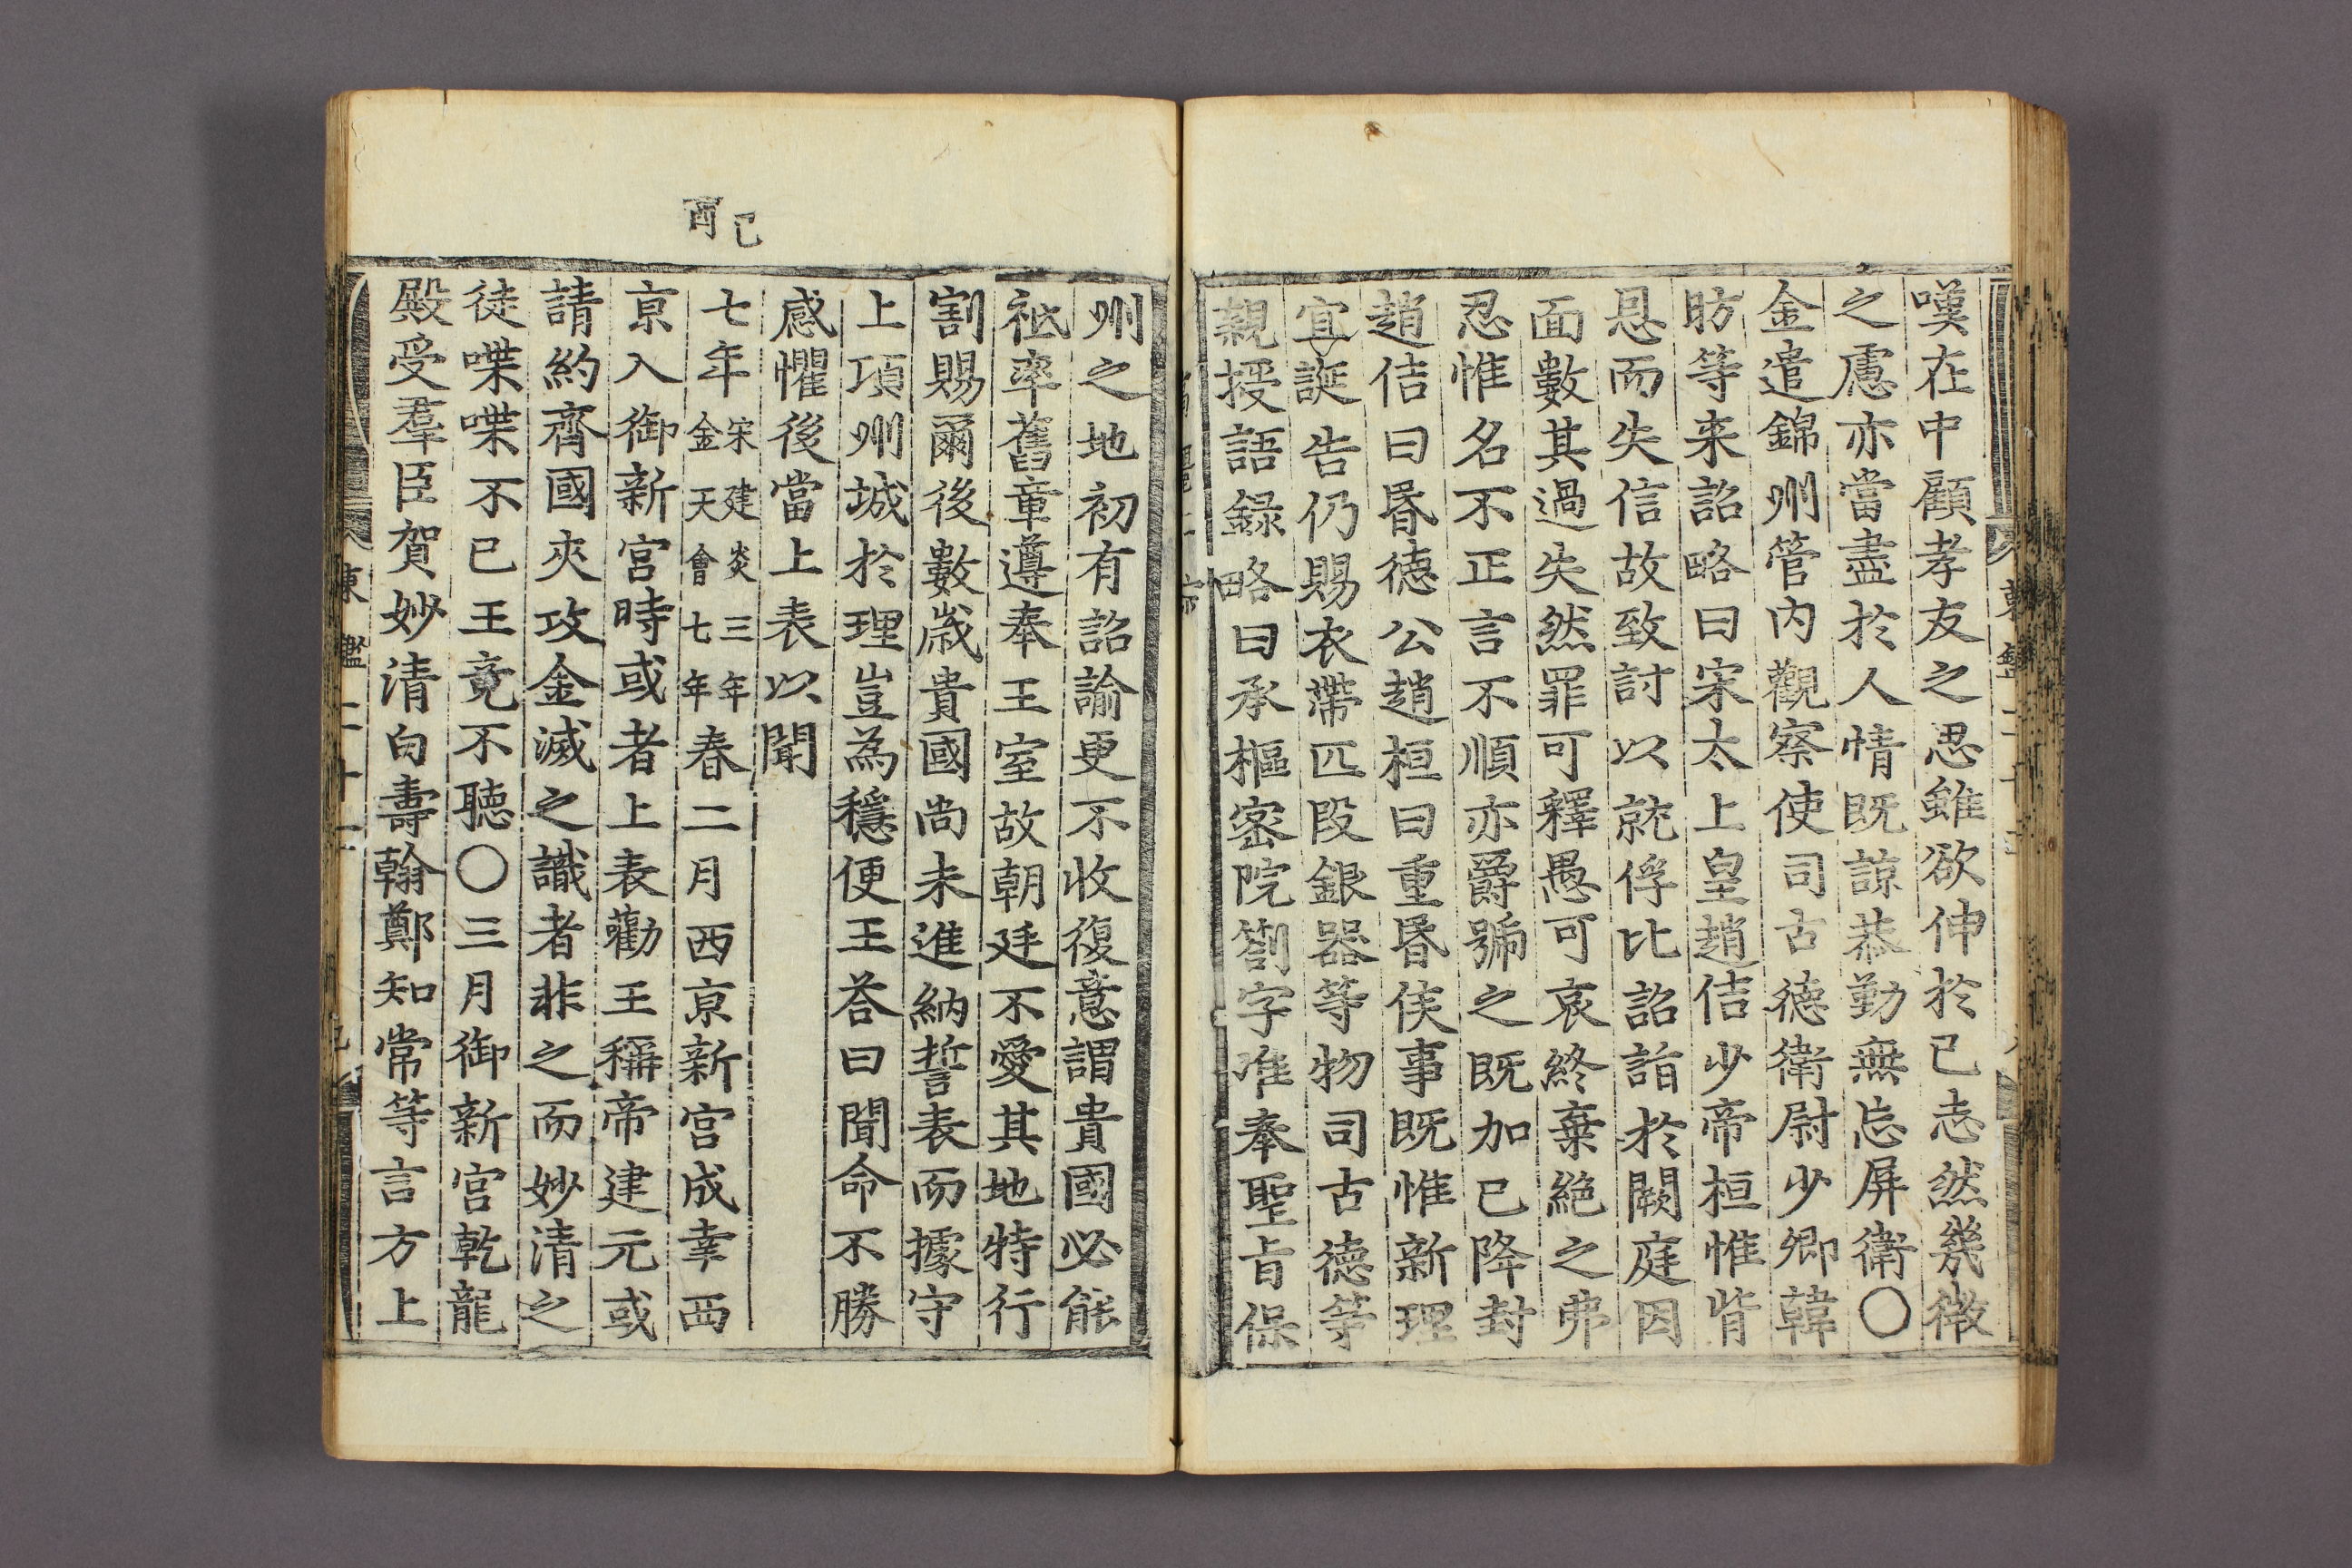 嘆在中顧孝友之思雖欲伸於己志然幾微
之慮亦當盡於人情既諒恭勤無忘屏衛〇
金遣錦州管内觀察使司古德衛尉少卿韓
昉等来詔略曰宋太上皇趙佶少帝桓惟背
恩而失信故致討以就俘比詔詣於闕庭因
面數其過失然罪可釋愚可哀終棄絶之弗
忍惟名不正言不順亦爵號之既加已降封
趙佶曰昏德公趙桓曰重昏侯事既惟新理
宜誕告仍賜衣帶匹段銀器等物司古德等
親授語録略曰承樞密院劄字准奉聖旨保
州之地初有詔諭更不收復意謂貴國必能
祗率舊章遵奉王室故朝廷不愛其地特行
割賜爾後數歲貴國尚未進納誓表而據守
上項州城於理豈為穩便王荅曰聞命不勝
感懼後當上表以聞
己酉
七年宋建炎三年金天會七年春二月西京新宮成幸西
京入御新宮時或者上表勸王稱帝建元或
請約齊國夾攻金滅之識者非之而妙清之
徒喋喋不已王竟不聽〇三月御新宮乾龍
殿受羣臣賀妙清白壽翰鄭知常等言方上
東鑑二十一